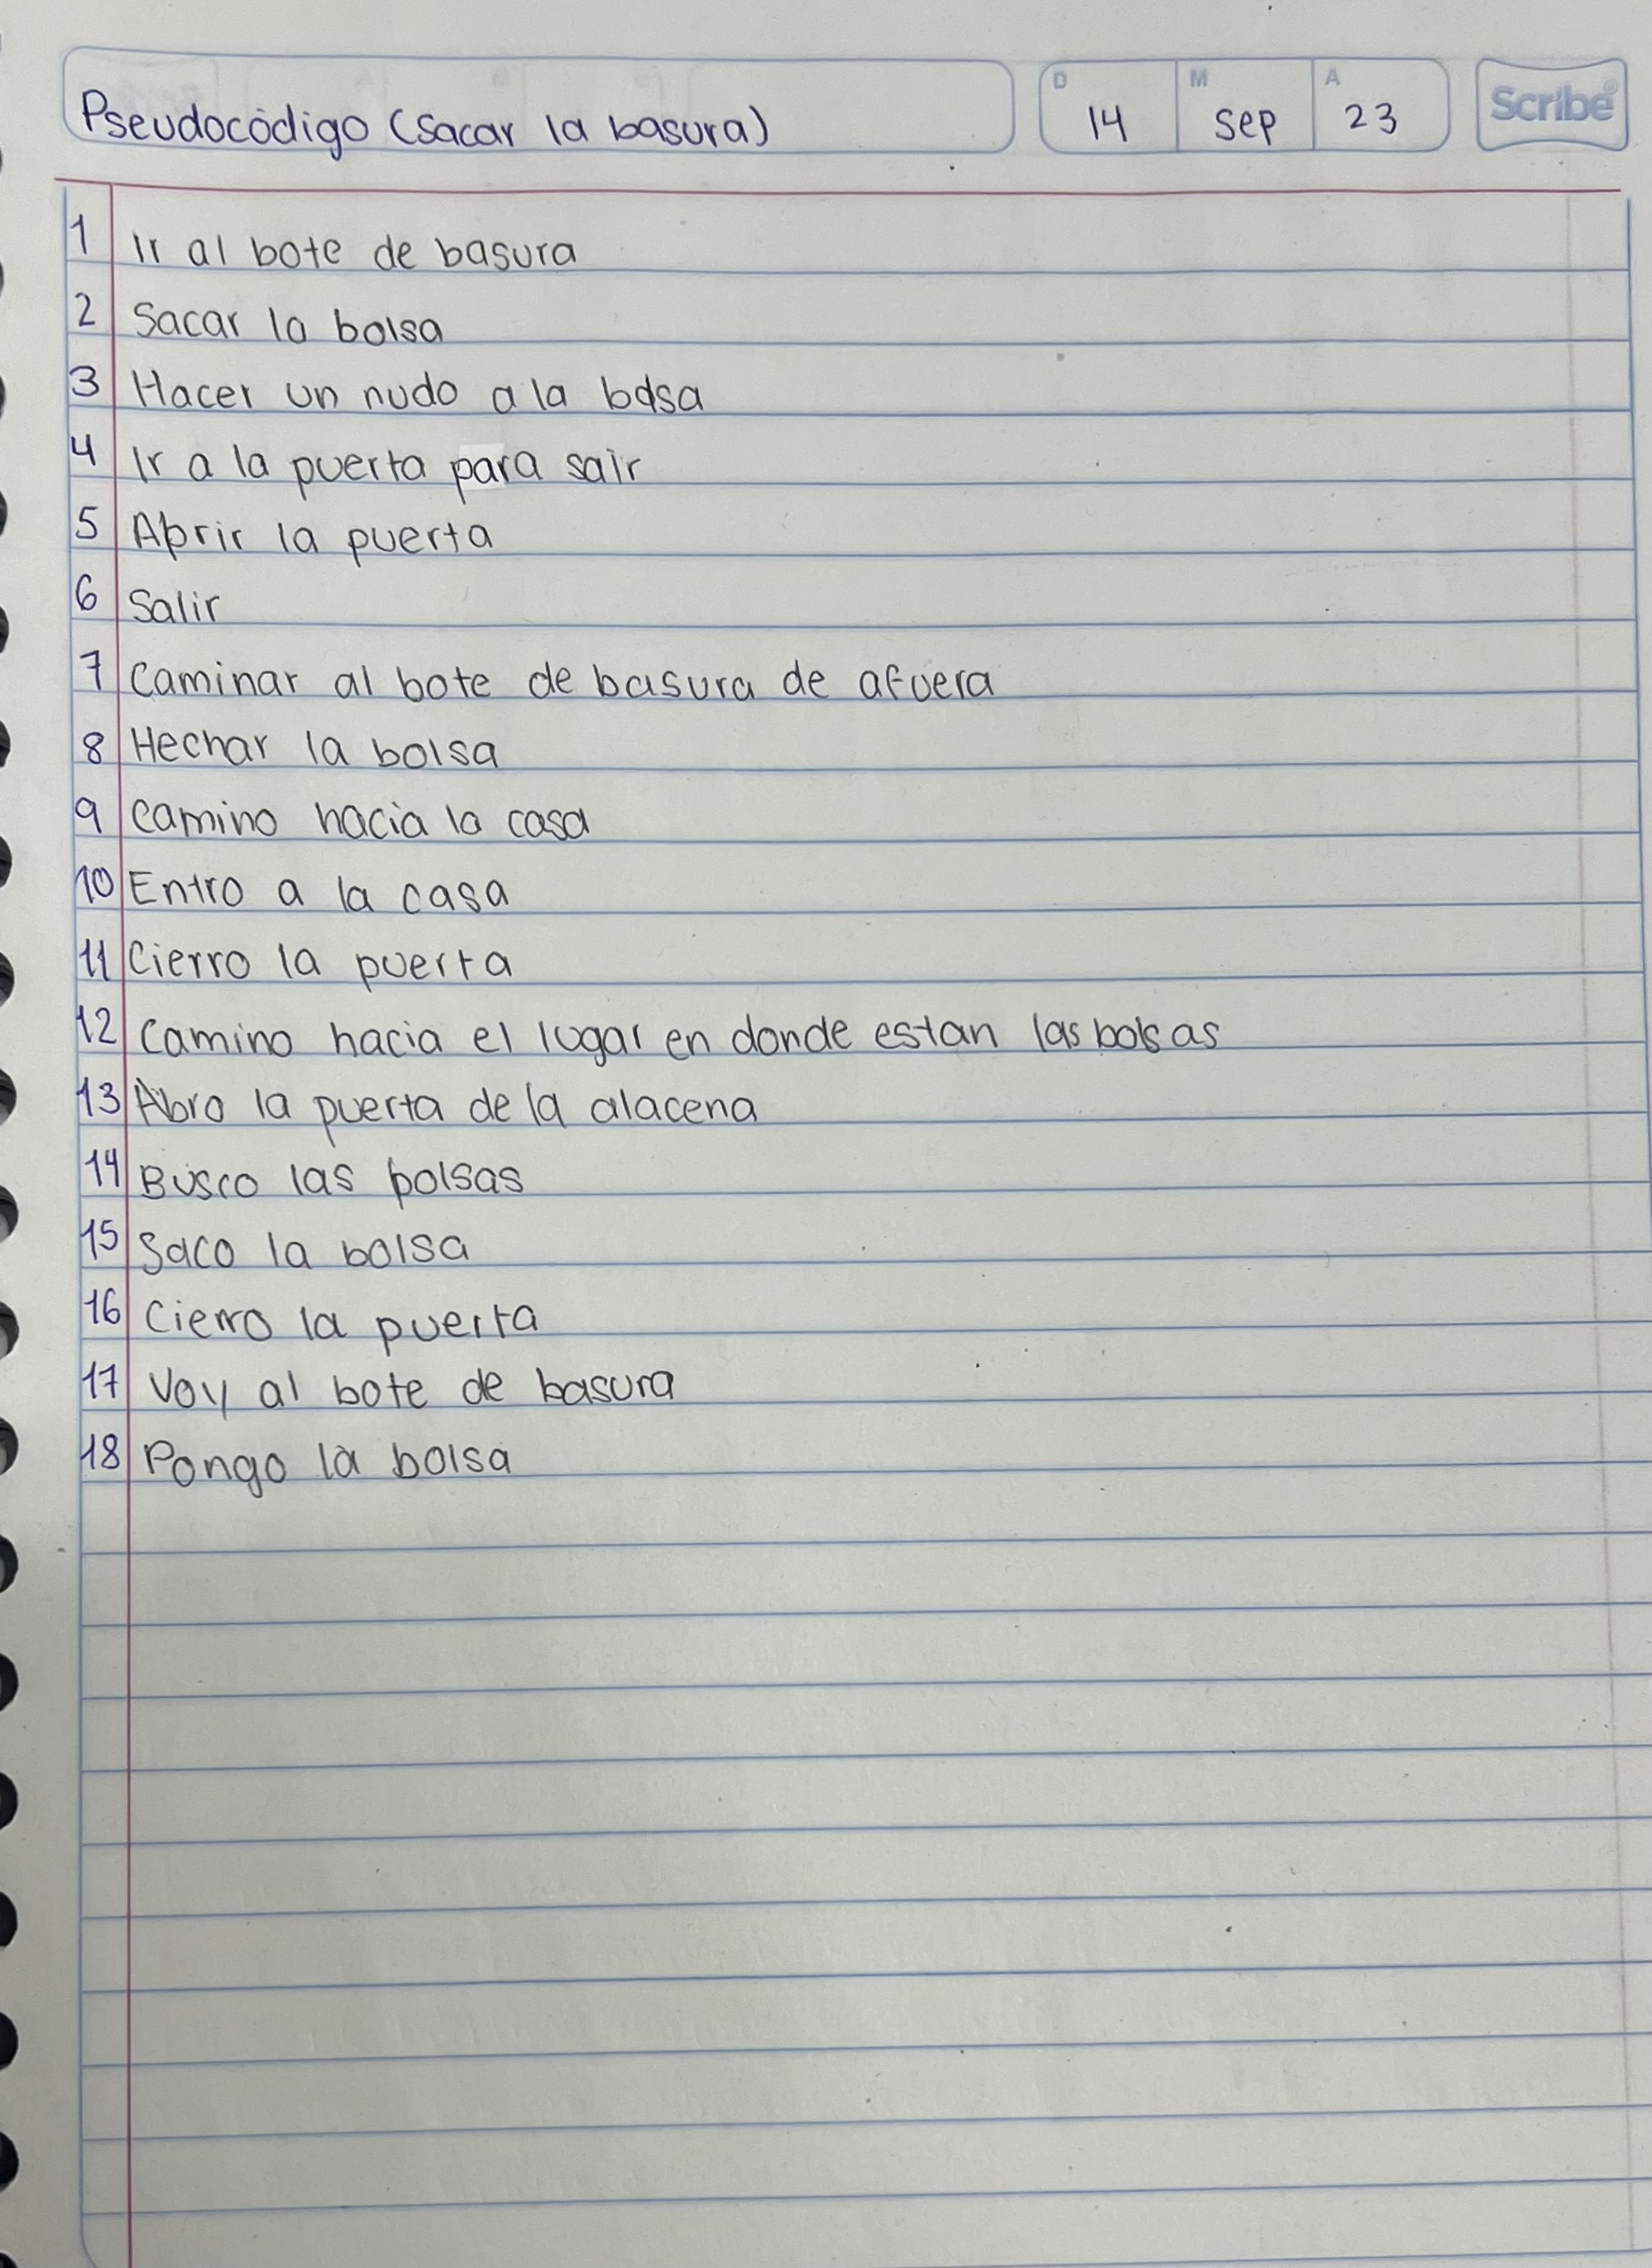 Pseudocódigo (Sacar la basura)
D 14 M sep A 23
Scribe®
1 Ir al bote de basura
2 Sacar la bolsa
3 Hacer un nudo a la bolsa
4 Ir a la puerta para salr
5 Abrir la puerta
6 Salir
7 Caminar al bote de basura de afuera
8 Hechar la bolsa
9 Camino hacia la casa
10 Entro a la casa
11 Cierro la puerta
12 Camino hacia el lugar en donde estan las bolsas
13 Abro la puerta de la alacena
14 Busco las bolsas
15 Saco la bolsa
16 Cierro la puerta
17 Voy al bote de basura
18 Pongo la bolsa